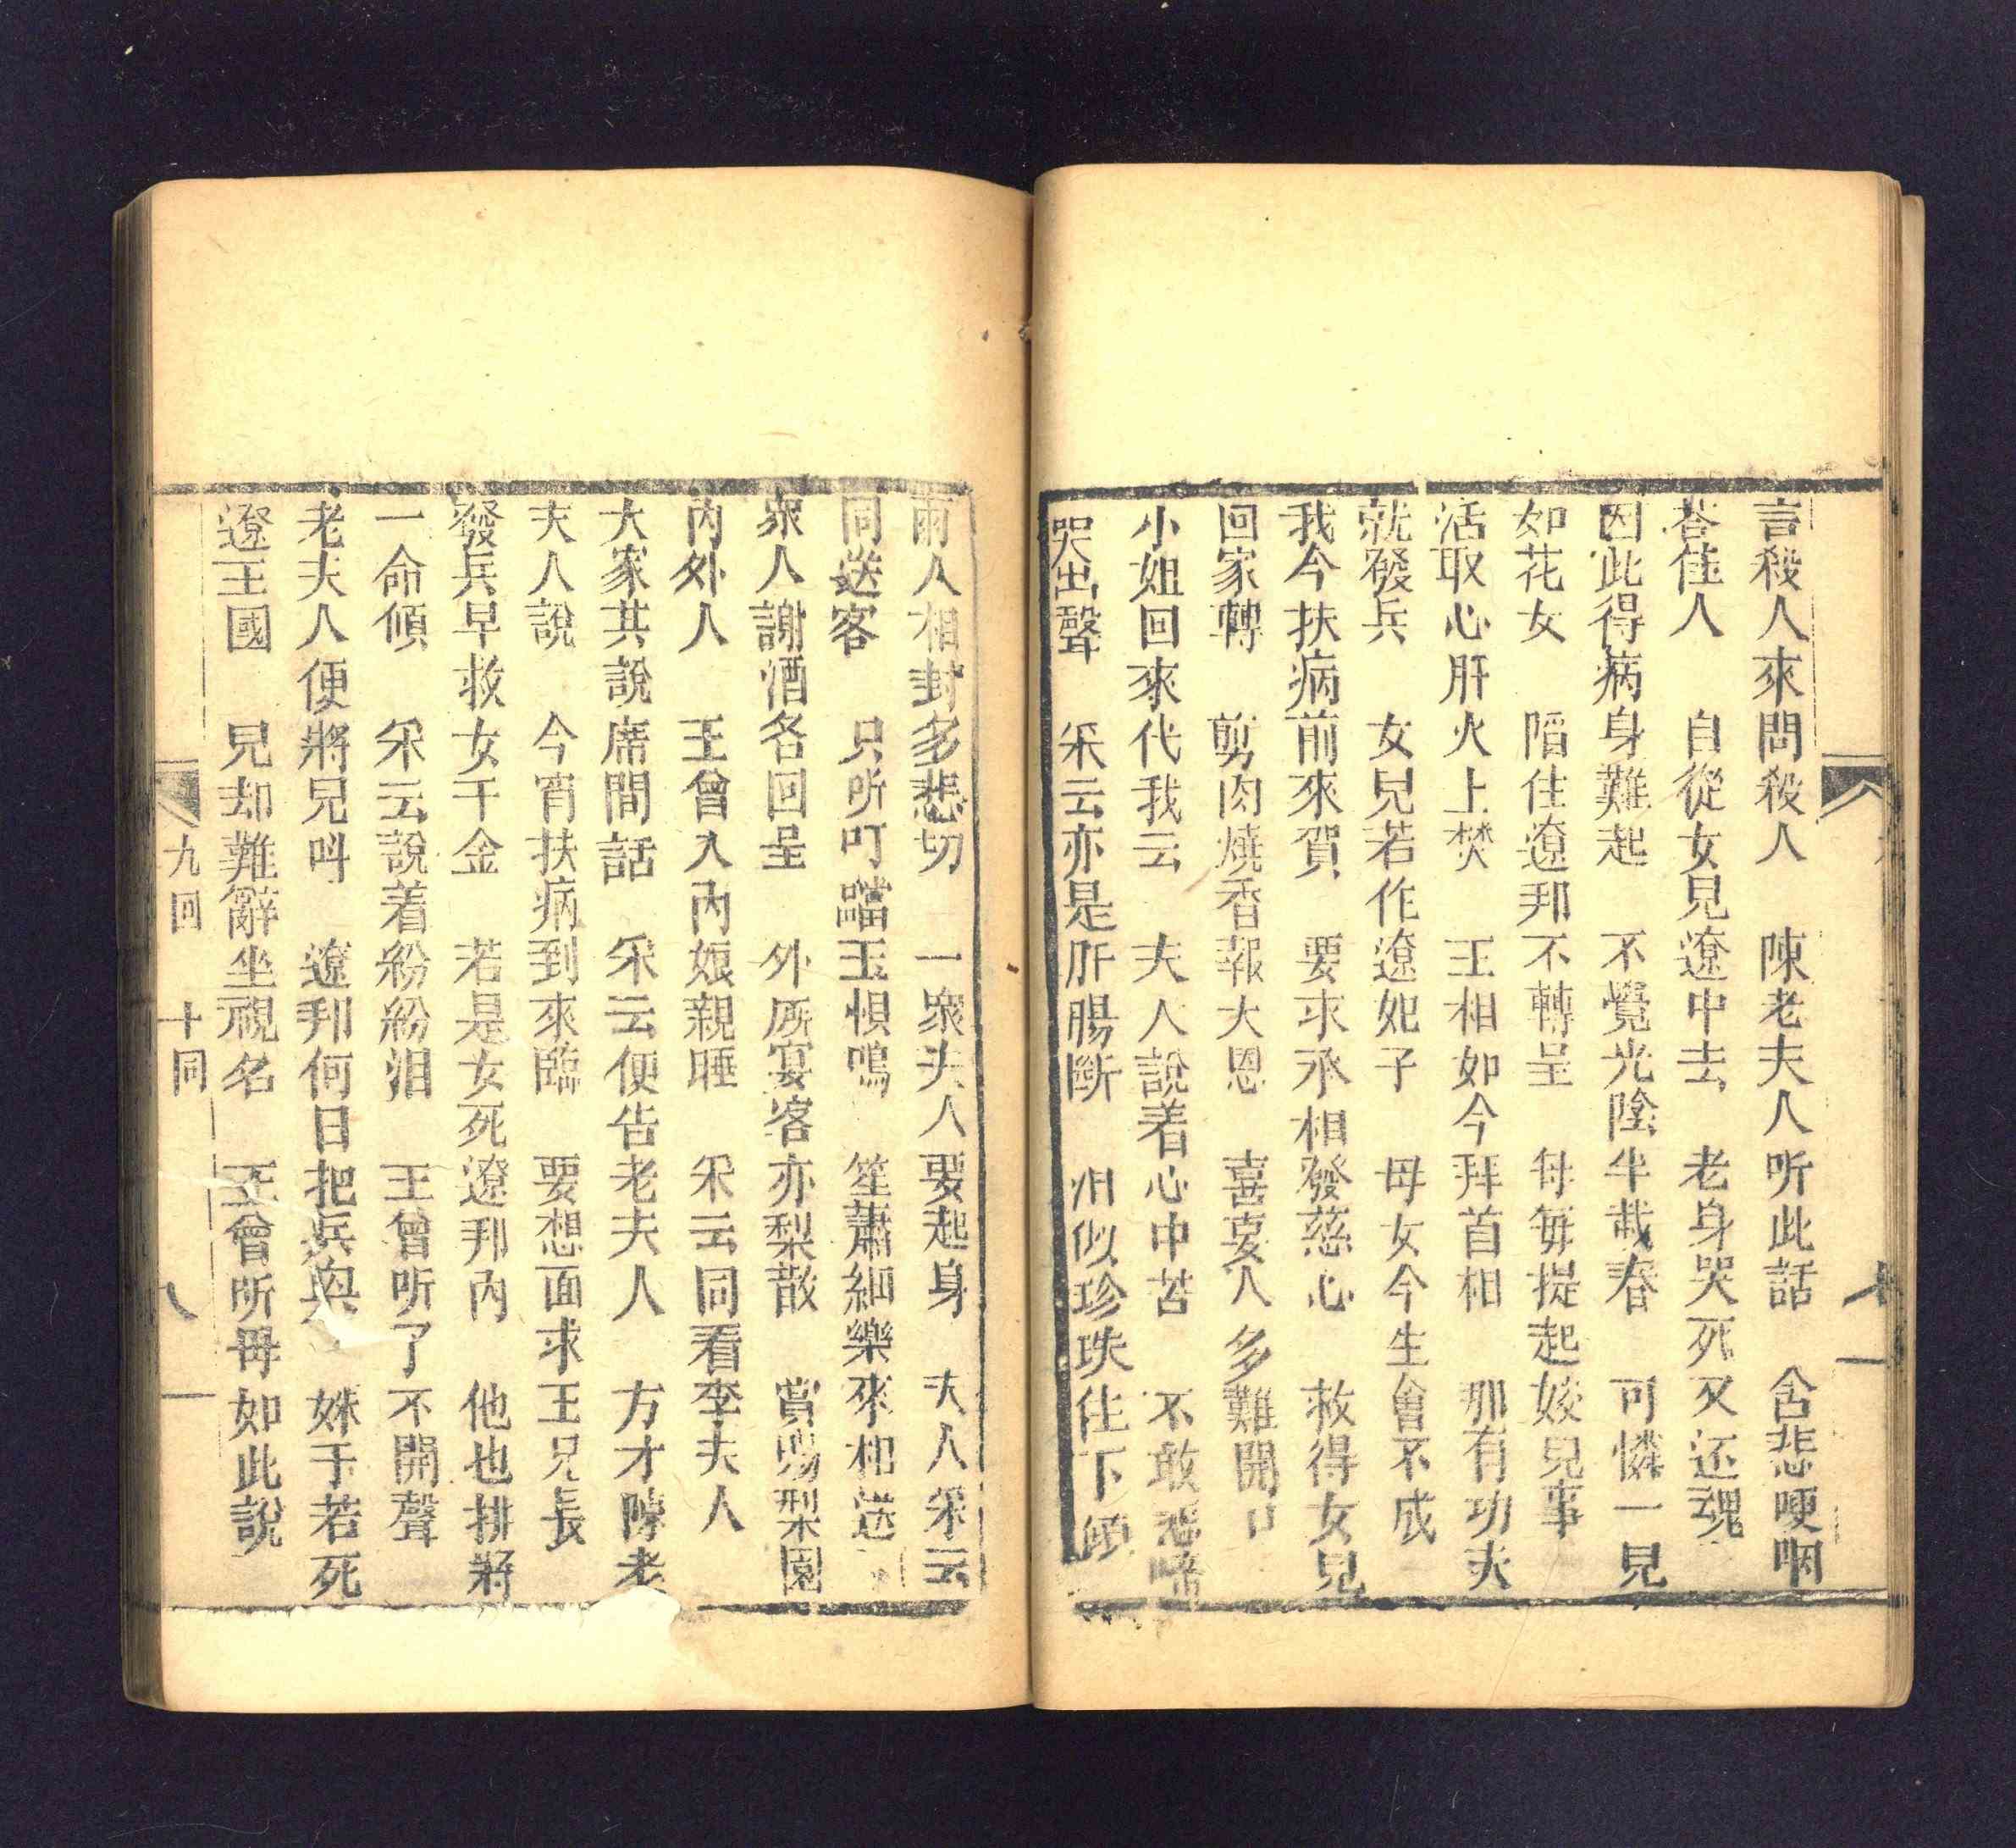 言殺人來問殺人 陳老夫人听此話 含悲哽咽
荅住人 自從女兒遼中去 老身哭死又还魂
因此得病身難起 不覺光陰半載春 可憐一兒
如花女 陷住遼邦不轉呈 母每提起姣兒事
活取心肝火上焚 王相如今拜首相 那有功夫
就發兵 女兒若作遼妃子 母女今生會不成
我今扶病前來賀 要求丞相發慈心 救得女兒
回家轉 剪肉燒香報大恩 喜妟人多難開口
小姐回來代我云 夫人說着心中苦 不敢悲啼
哭出聲 采云亦是肝腸斷 泪似珍珠住下傾
兩人相對多悲切 一衆夫人要起身 夫人采云
同送客 只所叮噹玉㥬鳴 笙蕭細樂來相送
衆人謝酒各回呈 外厛宴客亦梨散 賞賜梨園
內外人 王曾入內娘親睡 采云同看李夫人
大家其說席間話 采云便告老夫人 方才陳老
夫人說 今宵扶病到來臨 要想面求王兄長
發兵早救女千金 若是女死遼邦內 他也拚將
一命傾 采云說着紛紛泪 王曾听了不開聲
老夫人便將兒呌 遼邦何日把兵興 姝于若死
遼王國 兒却難辭坐視名 王曾所毋如此說
九回 十同 八